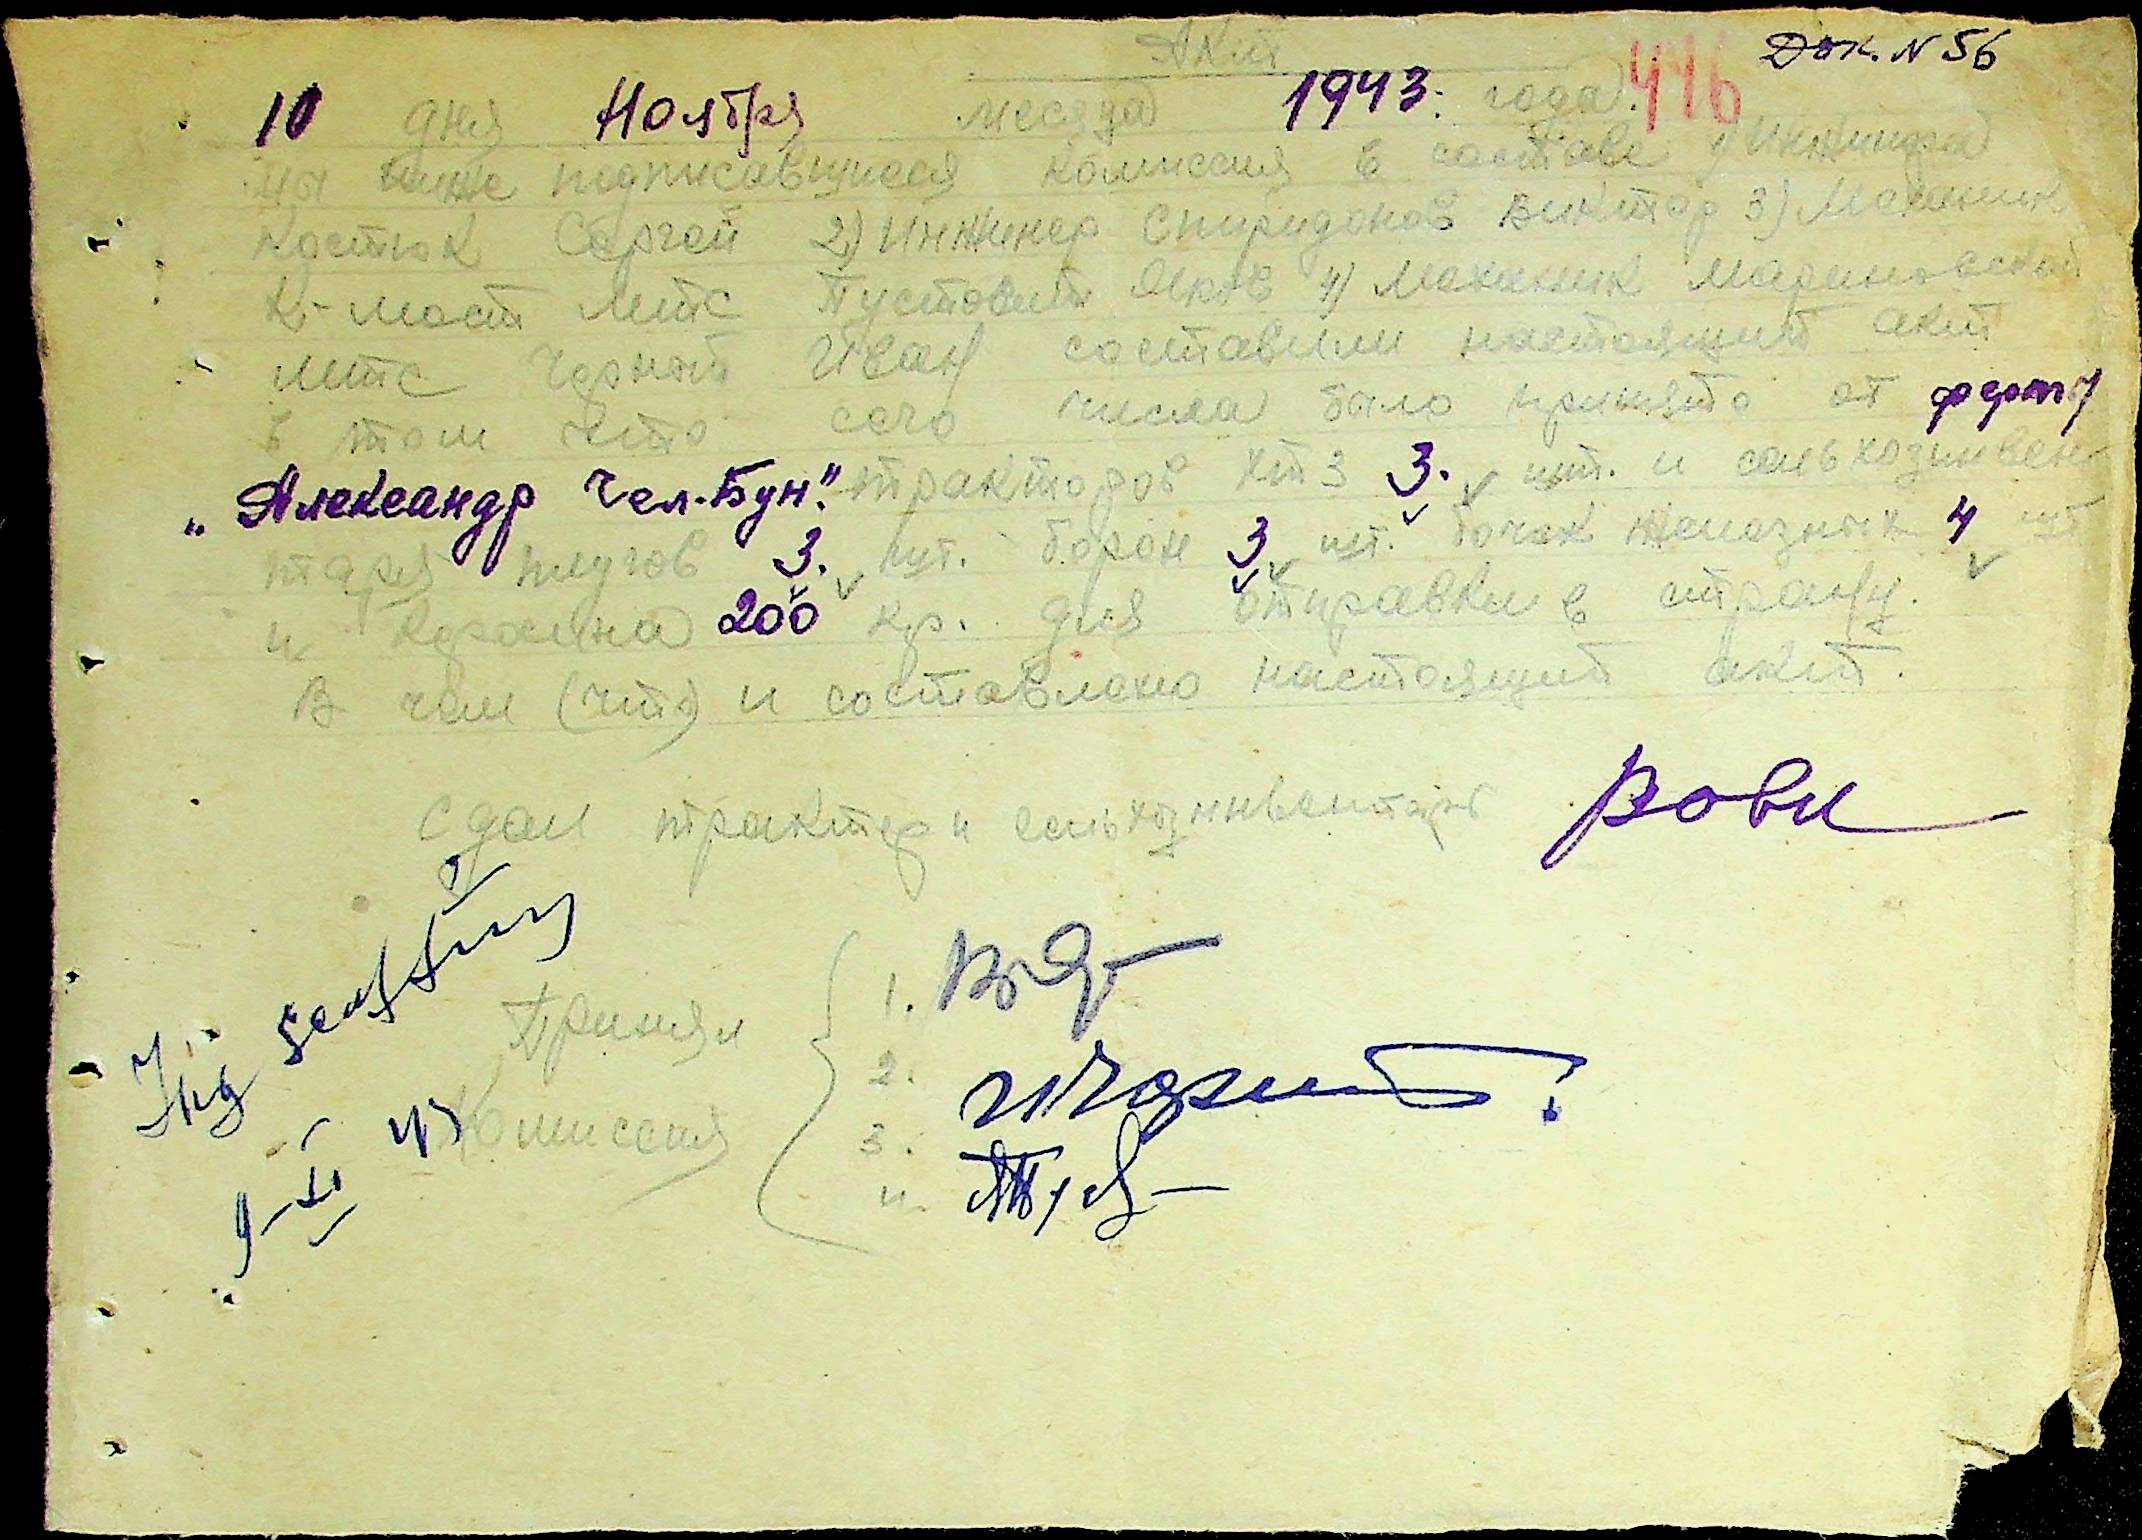 Док. N 56
Акт
446
10 дня Ноября месяца 1943. года.
мы ниже подписавшиеся комиссия в составе 1) Инжинера
Костюк Сергей 2) Инжинер Спиридонов Виктор 3) Механик
К-мост МТС Пустовит Яков 4) Механик Мариновской
МТС Черный Иван составили настоящий акт
в том что сего числа было принято от ферму
"Александр Чел-Бун." тракторов ХТЗ 3. шт. и сельхозинвен-
таря плугов 3. шт. борон 3 шт. бочек железных 4 шт
и Керасина 200 кгр. для отправки в страну.
В чем (что) и составлено настоящий акт.
Сдал трактор и сельхозинвентарь
Принял
Комиссия
1.
2.
3.
4.
9-XI 43